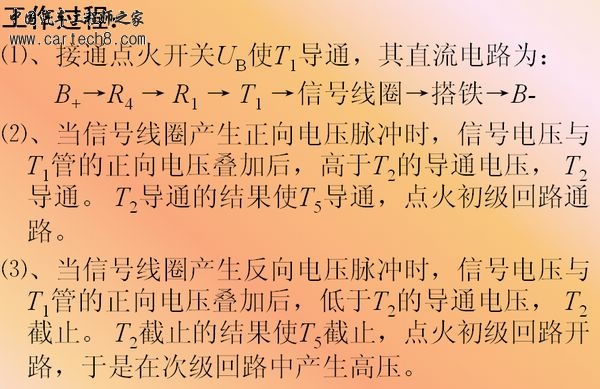 工作过程:
中国汽车工程师之家
www.cartech8.com
⑴、接通点火开关UB使T1导通，其直流电路为：
B+→R4→R1→T1→信号线圈→搭铁→B-
⑵、当信号线圈产生正向电压脉冲时，信号电压与
T1管的正向电压叠加后，高于T2的导通电压，T2
导通。T2导通的结果使T5导通，点火初级回路通
路。
⑶、当信号线圈产生反向电压脉冲时，信号电压与
T1管的正向电压叠加后，低于T2的导通电压，T2
截止。T2截止的结果使T5截止，点火初级回路开
路，于是在次级回路中产生高压。